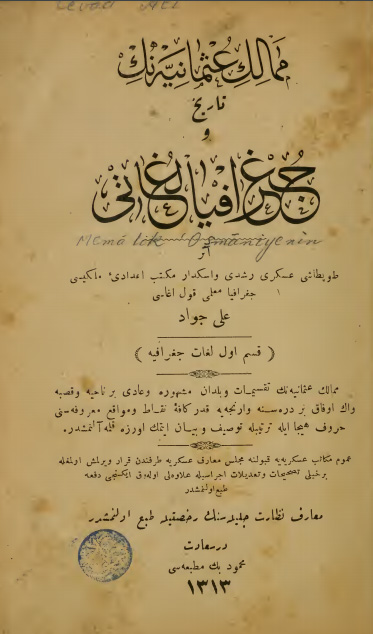 Cevad Ali
ممالك عثمانیه‌نك
تاریخ
و
جغرافیا لغاتی
Memâlik 'Osmâniyenin
اثر
طوپطاشی عسكری رشدی واسكدار مكتب اعدادیٔ ملكیسی
جغرافیا معلمی قول اغاسی
علی جواد
( قسم اول لغات جغرافیه )
ممالك عثمانیه‌نك تقسیمات وبلدان مشهوره وعادی بر ناحیه وقصبه
واك اوفاق بر دره‌سنه وارنجه‌یه قدر كافهٔ نقاط ومواقع معروفه‌سنی
حروف هجا ایله ترتیبله توصیف وبیان ایتمك اوزره قلمه آلنمشدر.
عموم مكاتب عسكریه‌یه قبولنه مجلس معارف عسكریه طرفندن قرار ویرلمش اولمغله
برخیلی تصحیحات وتعدیلات اجراسیله علاوه‌لی اوله‌رق ایكنجی دفعه
طبع اولنمشدر
معارف نظارت جلیله‌سنك رخصتیله طبع اولنمشدر
درسعادت
محمود بك مطبعه‌سی
١٣١٣